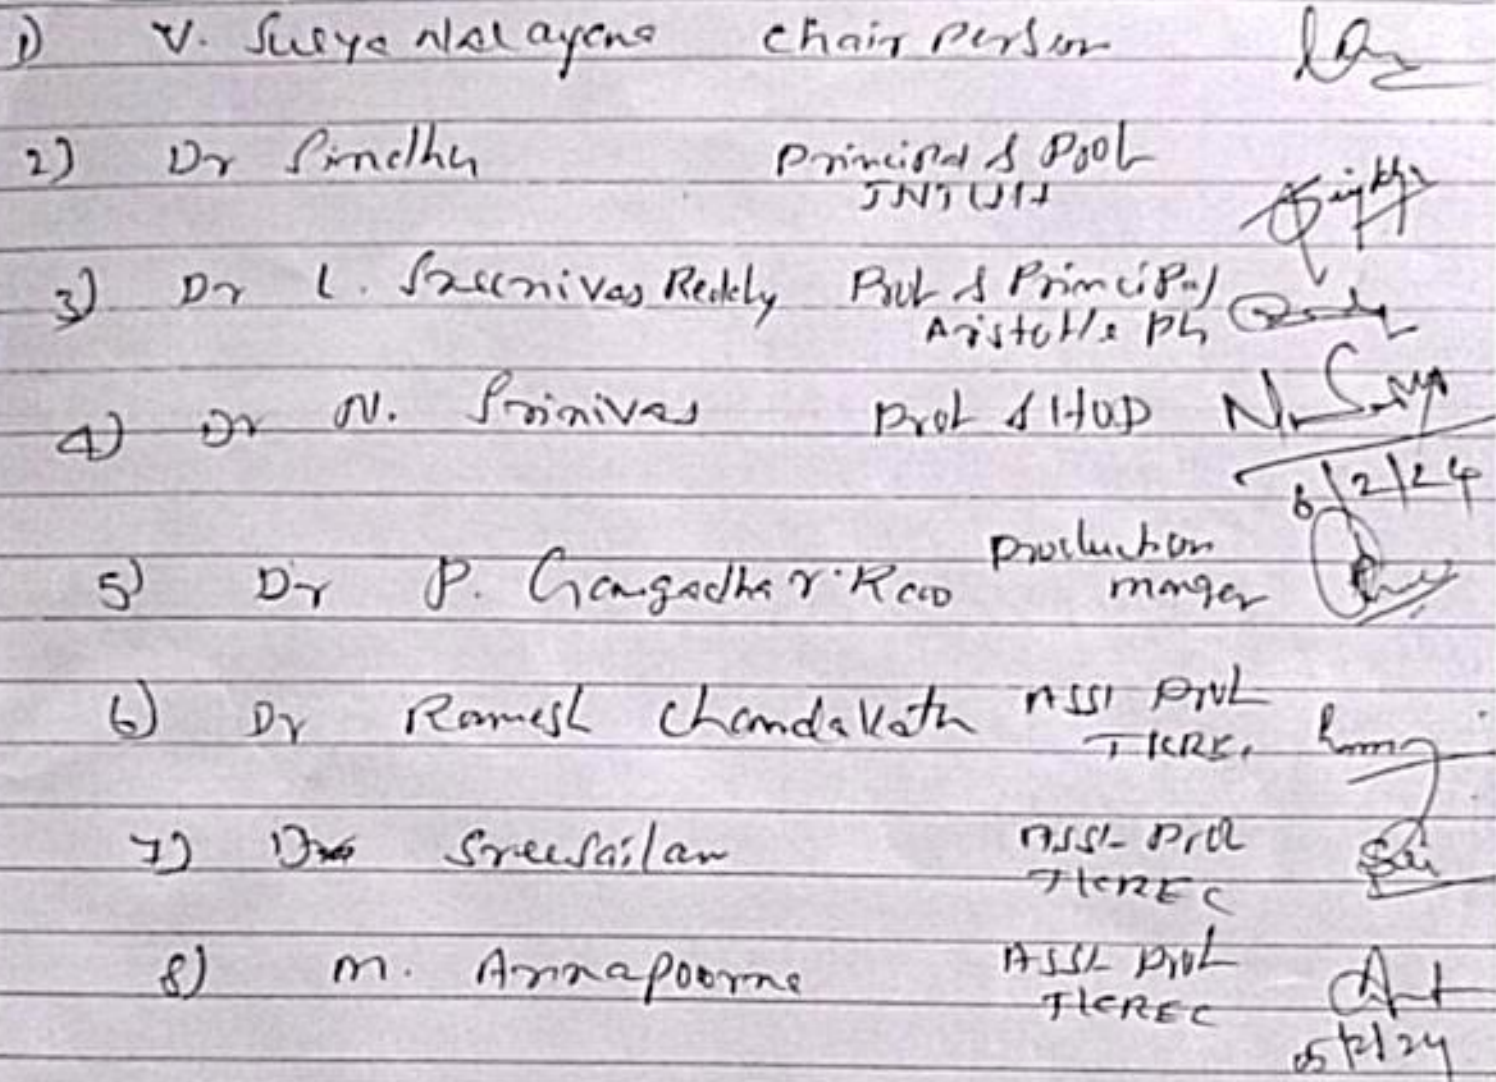 1) V. Surya Narayana Chair person
2) Dr Sindhu Principal & Prof
JNTUH
3) Dr L. Sreenivas Reddy Prof & Principal
Aristotle Ph
4) Dr N. Srinivas Prof & HOD
6/2/24
5) Dr P. Gangadhar Rao production
manger
6) Dr Ramesh Chandakath Asst Prof
TKRE.
7) Dr Sreesailam Asst Prof
TKREC
8) M. Annapoorna Asst Prof
TKREC
05/2/24